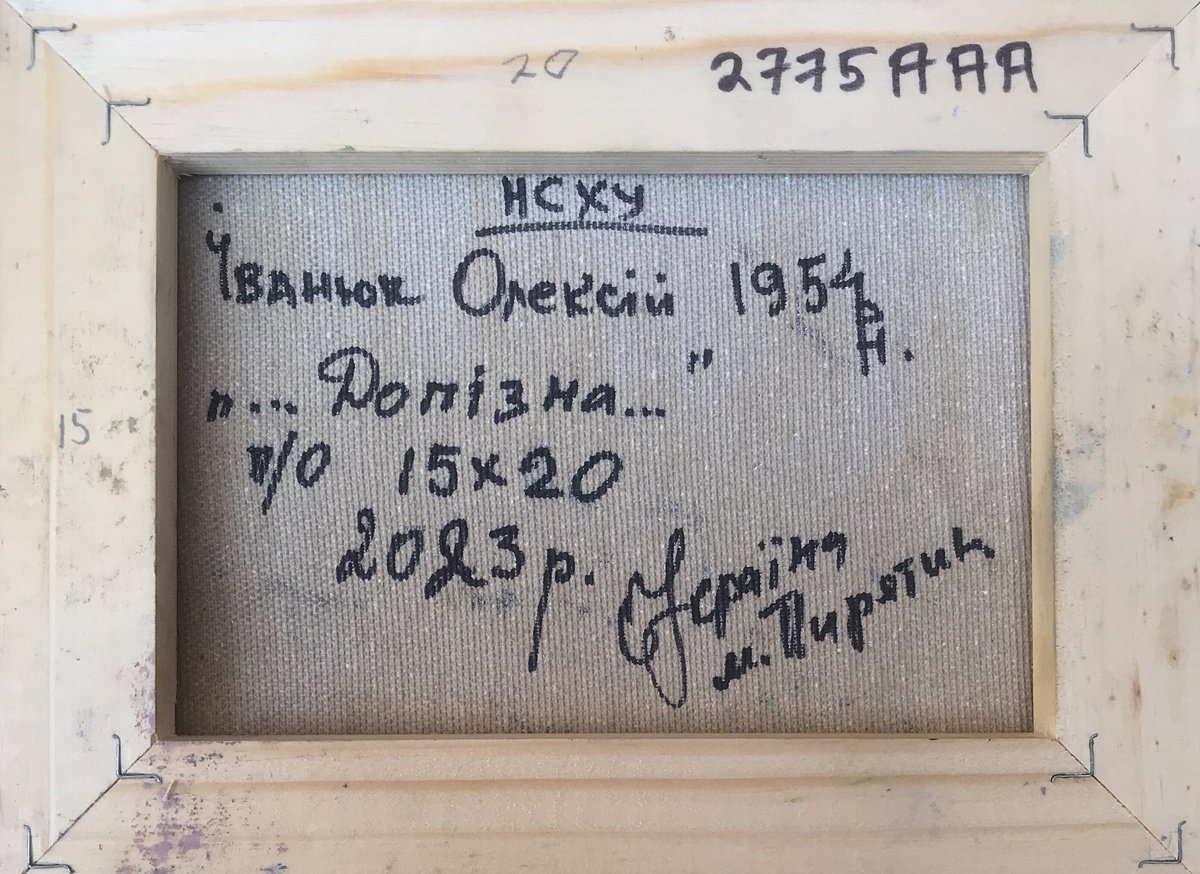 20 2775AAA
НСХУ
Іванюк Олексій 1954
р.н.
"... Допізна... "
15
п/о 15х20
2023 р.
Україна
м. Пирятин